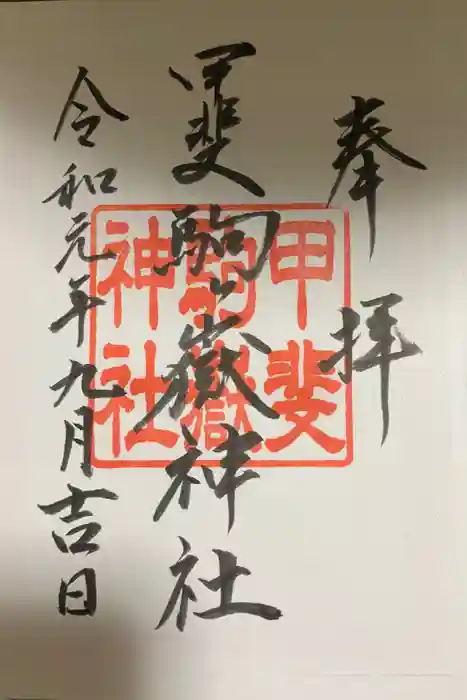 奉拝
甲斐駒ヶ嶽神社
令和元年九月吉日
甲斐
駒ヶ嶽
神社